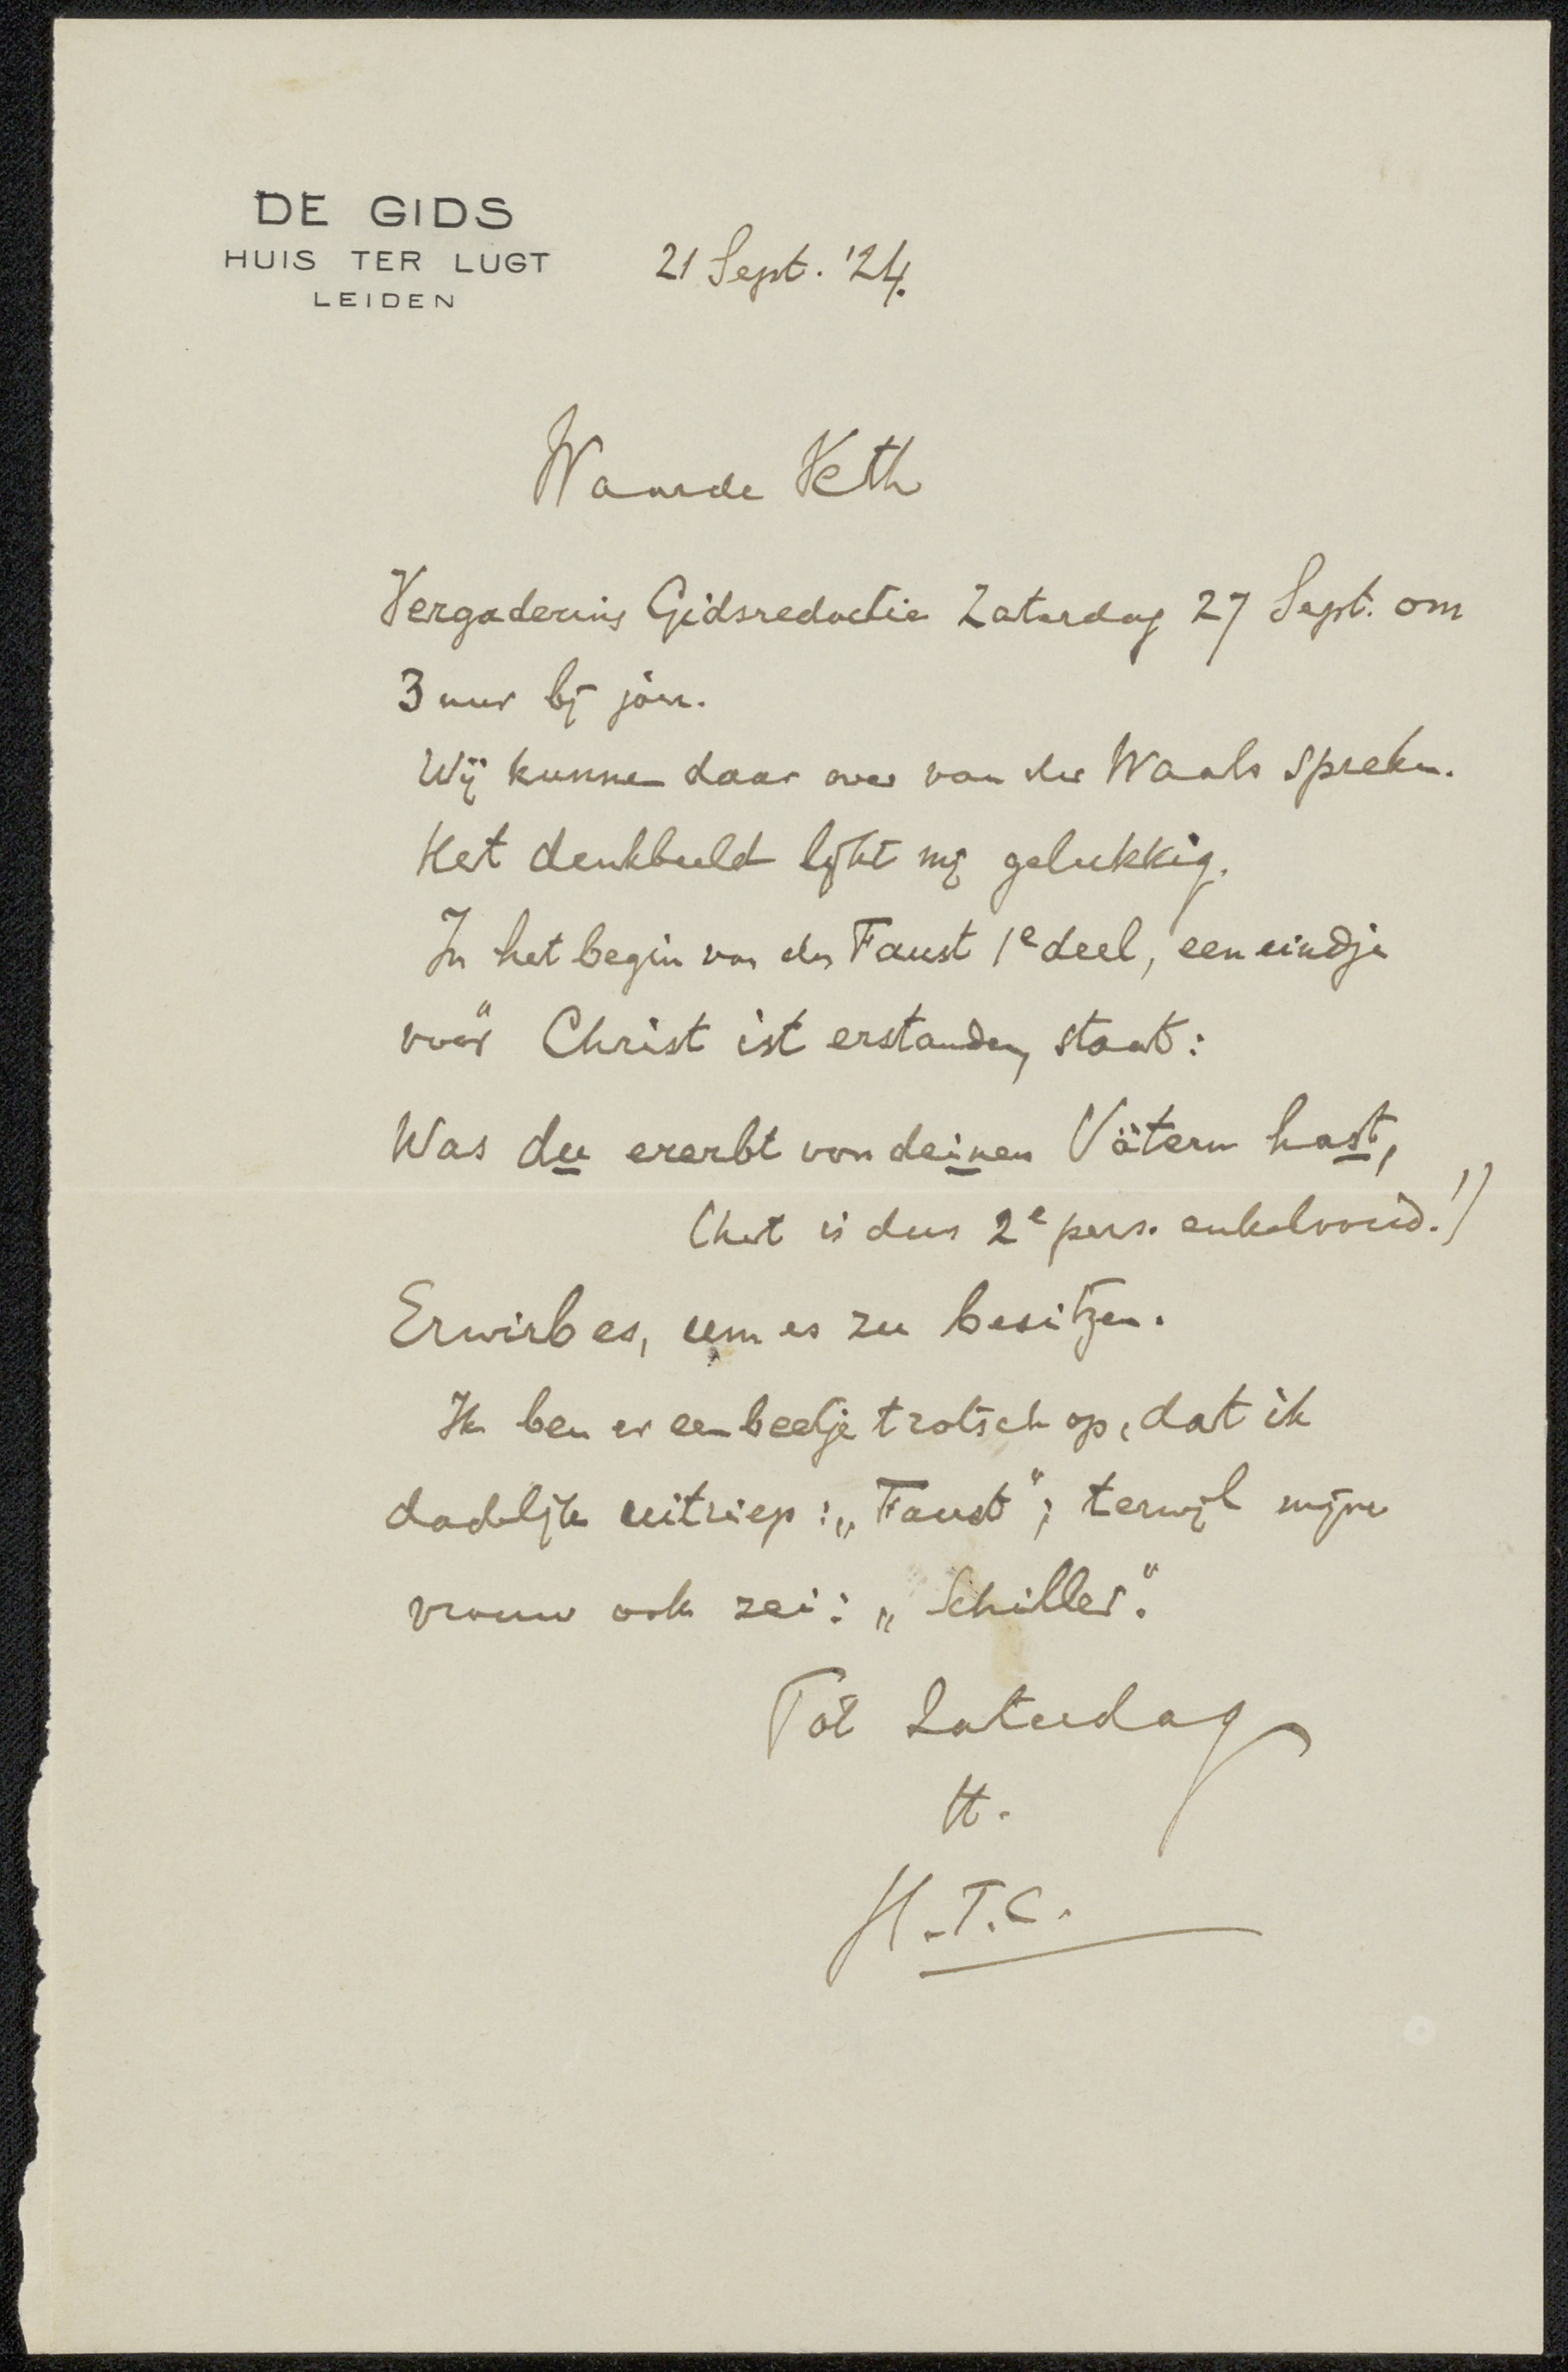 DE GIDS
HUIS TER LUGT
LEIDEN
21 Sept. '24.
Waarde Veth
Vergadering Gidsredactie Zaterdag 27 Sept. om
3 uur bij jou.
Wij kunnen daar over van der Waals spreken.
Het denkbeeld lijkt mij gelukkig.
In het begin van den Faust 1e deel, een eindje
vóór Christ ist erstanden, staat:
Was du ererbt von deinen Vätern hast,
(het is dus 2e pers. enkelvoud!)
Erwirb es, um es zu besitzen.
Ik ben er een beetje trotsch op, dat ik
dadelijk uitriep: „Faust"; terwijl mijne
vrouw ook zei: „Schiller."
Tot Zaterdag
tt.
H.T.C.